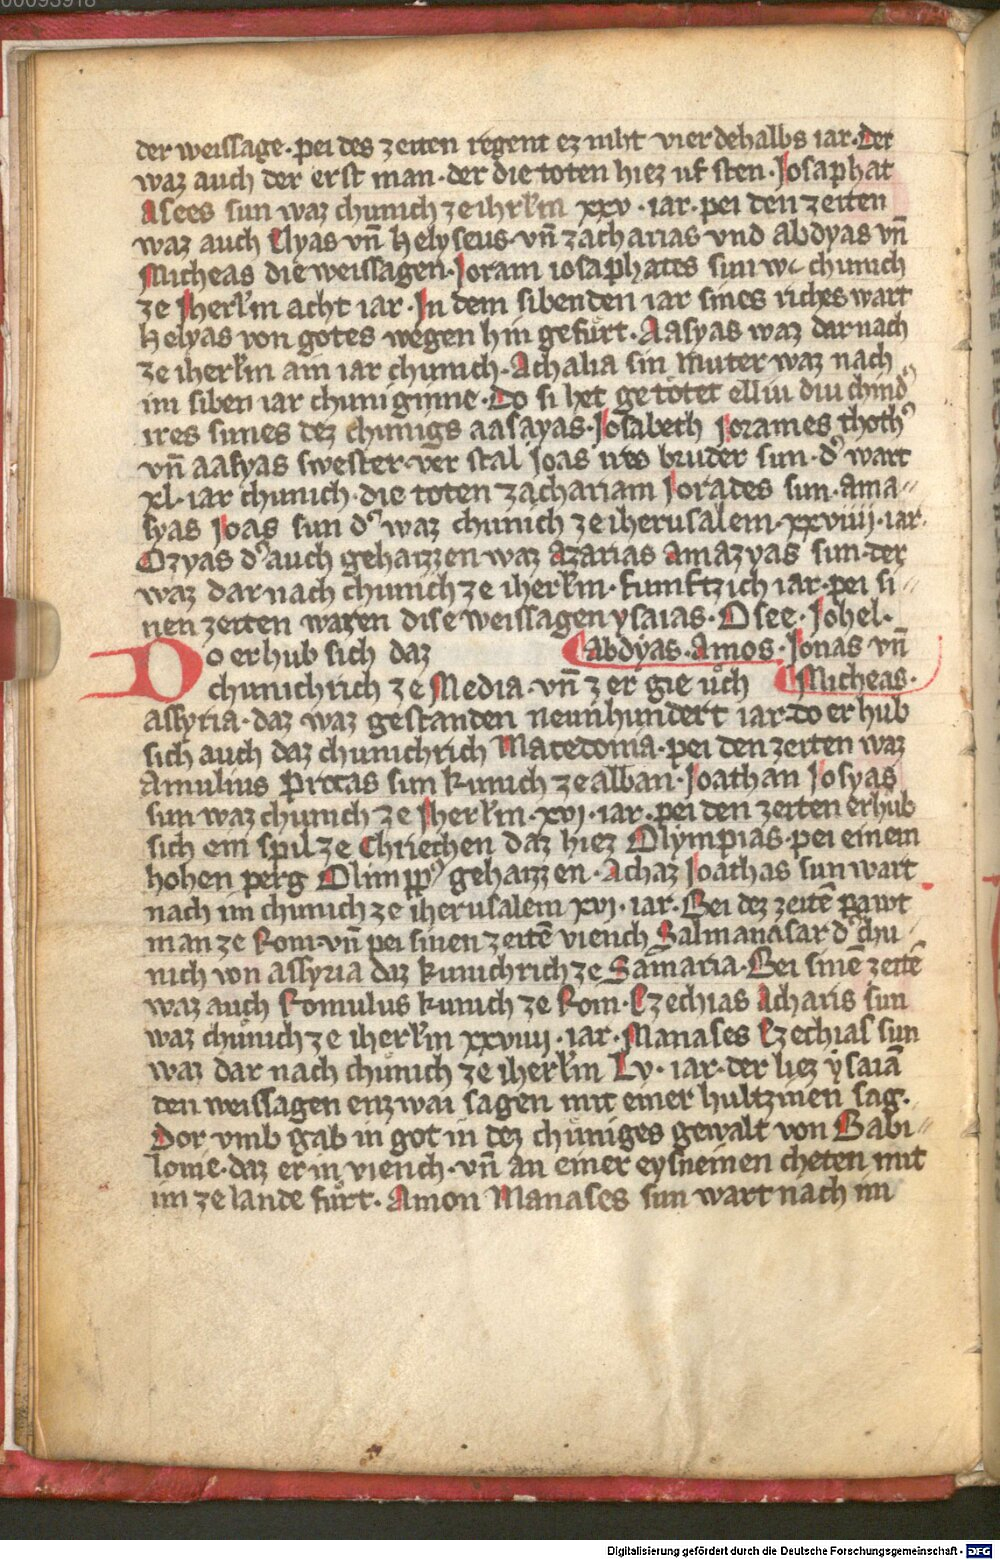 der weissage · pei des zeiten regent ez niht vierdehalbs iar · Der
waz auch der erst man · der die toten hiez uf sten · Josaphat
Asees sun waz chunich ze ihrl̄m xxv · iar · pei den zeiten
waz auch Elyas vn̄ helyseus · vn̄ zacharias vnd abdyas vn̄
Micheas die weissagen · Joram iosaphates sun chunich
ze Jherl̄m acht iar · In dem sibenden iar sines riches wart
helyas von gotes wegen hin gefůrt · Aasyas waz dar nach
ze iherl̄m ain iar chunich · Achalia sin muter waz nach
im siben iar chuniginne · Do si het getötet elliu diu chind
ires sunes dez chunigs aasayas · Josabeth Jorames thoth᾽
vn̄ aasyas swester · ver stal Joas bruder sun · d᾽ wart
xl · iar chunich · die toten zachariam Joiades sun · ama〃
syas Joas sun d᾽ waz chunich ze iherusalem · xxviiij · iar ·
Ozyas d᾽ auch gehaizzen waz Azarias Amazyas sun · der
waz dar nach chunich ze iherl̄m · funftzich iar · pei si〃
nen zeiten waren dise weissagen ysaias · Osee · Johel ·
Abdyas · Amos · Jonas vn̄
Micheas ·
Do erhub sich daz
chunichrich ze Media · vn̄ zer gie uͦch
assyria · daz waz gestanden neunhundert iar · do erhub
sich auch daz chunichrich Macedonia · pei den zeiten waz
Amulius Procas sun kunich ze alban · Joathan Josyas
sun waz chunich ze Jherl̄m · xvj · iar · pei den zeiten erhub
sich ein spil ze Chriechen daz hiez Olympias · pei einem
hohen perg Olimpp᾽ gehaizzen · Achaz Joathas sun wart
nach im chunich ze iherusalem xvj · iar · Bei dez zeitē pawt
man ze Rom · vn̄ pei sinen zeitē viench Salmanasar d᾽ chu〃
nich von assyria daz kunichrich ze Samaria · Bei sinē zeitē
waz auch Romulus kunich ze Rom · Ezechias Acharis sun
waz chůnich ze iherl̄m xxviiij · iar · Manases Ezechias sun
waz dar nach chůnich ze iherl̄m Lv · iar · der liez ysaiā
den weissagen enzwai sagen mit einer hultzinen sag ·
Dor vmb gab in got in dez chůniges gewalt von Babi〃
lonie · daz er in viench · vn̄ an einer eysneinen cheten mit
im ze lande fůrt · Amon Manases sun wart nach im
Digitalisierung gefördert durch die Deutsche Forschungsgemeinschaft - DFG